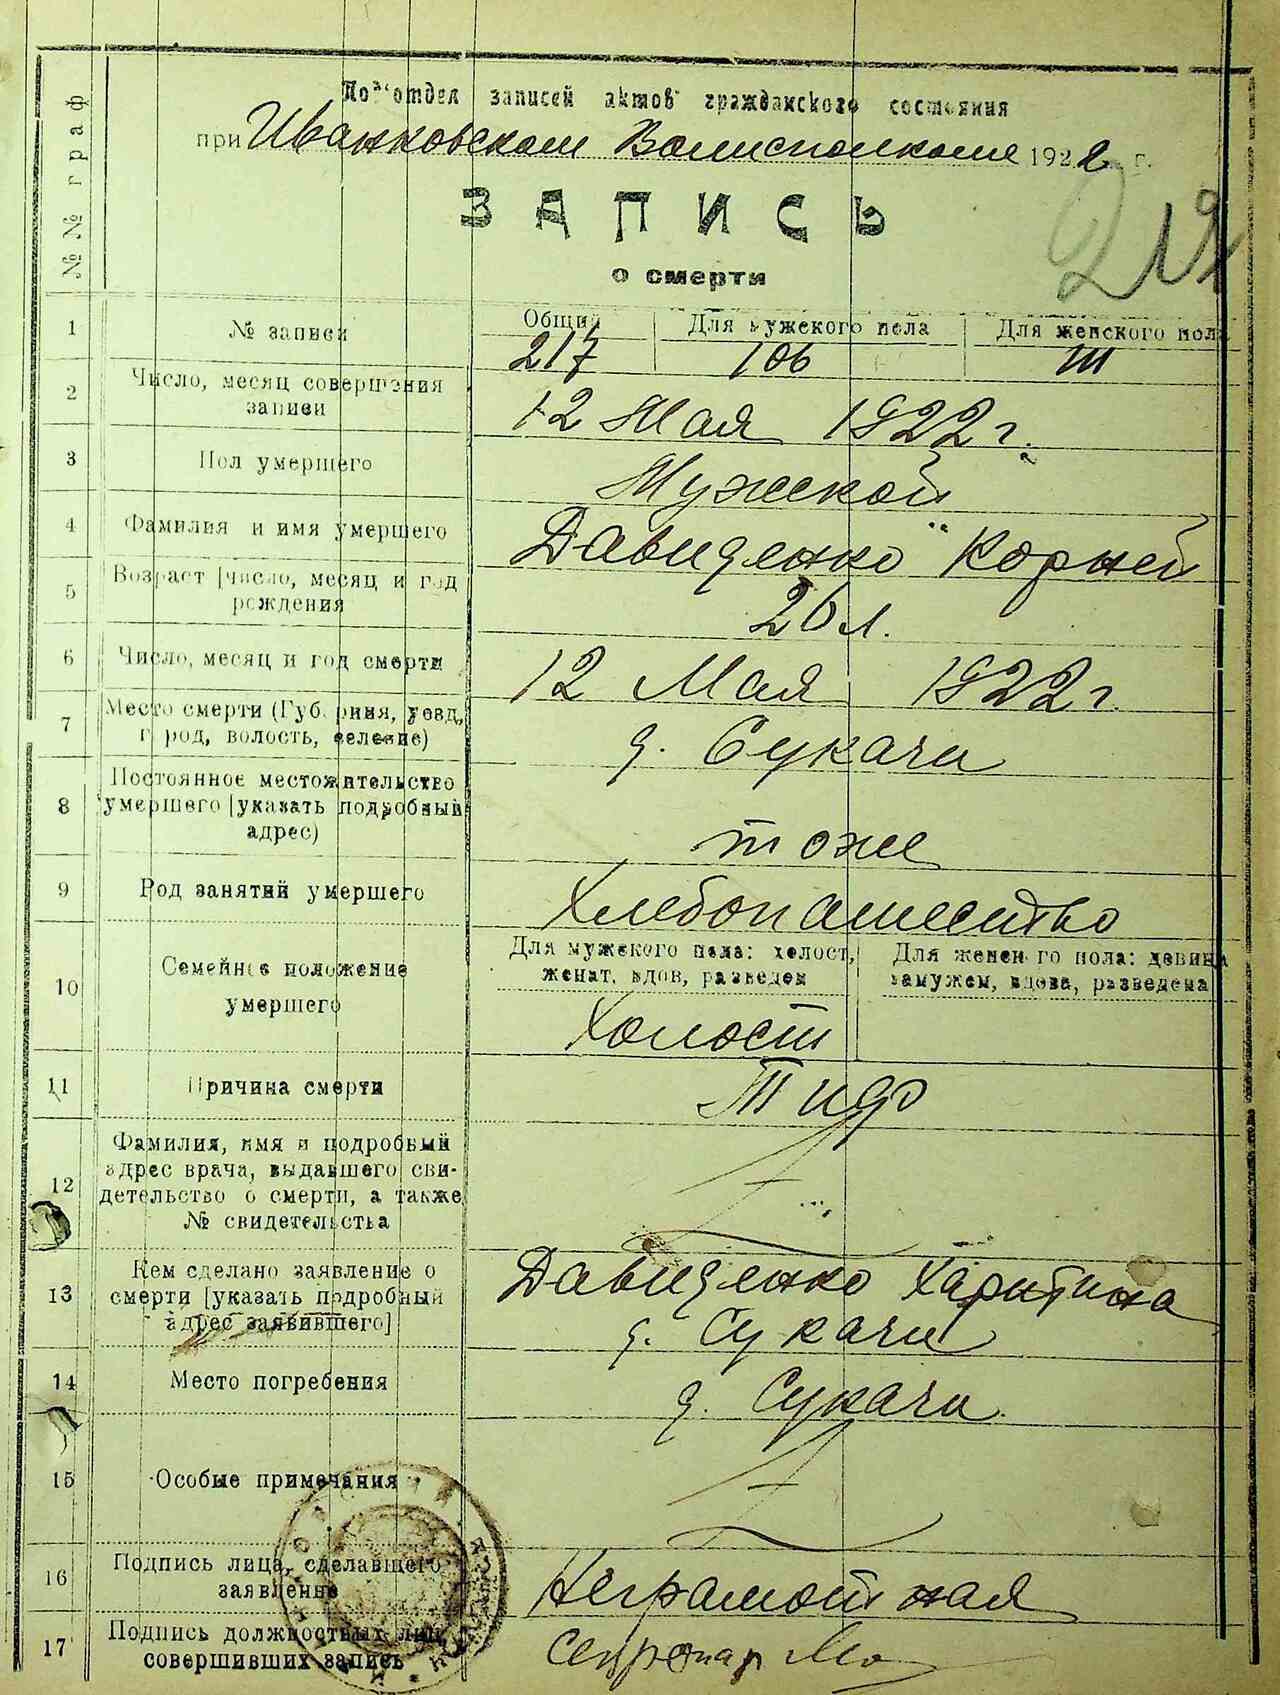 № № граф
Подотдел записей актов гражданского состояния
при Иванковском Волисполкоме 1922 г.
ЗАПИСЬ
о смерти
212
1 № записи Общий Для мужского пола Для женского пола
217 106 111
2 Число, месяц совершения записи
12 Мая 1922 г.
3 Пол умершего
Мужской
4 Фамилия и имя умершего
Давиденко Корней
5 Возраст [число, месяц и год рождения
26 л.
6 Число, месяц и год смерти
12 Мая 1922 г.
7 Место смерти (Губерния, уезд, город, волость, селение)
д. Сукачи
8 Постоянное местожительство умершего [указать подробный адрес)
тоже
9 Род занятий умершего
Хлебопашество
10 Семейное положение умершего
Для мужского пола: холост, женат, вдов, разведен
Для женского пола: девица замужем, вдова, разведена
Холост
11 Причина смерти
Тиф
12 Фамилия, имя и подробный адрес врача, выдавшего свидетельство о смерти, а также № свидетельства
13 Кем сделано заявление о смерти [указать подробный адрес заявившего]
Давиденко Харитина
д. Сукачи
14 Место погребения
д. Сукачи
15 Особые примечания
16 Подпись лица, сделавшего заявление
Неграмотная
17 Подпись должностных лиц, совершивших запись